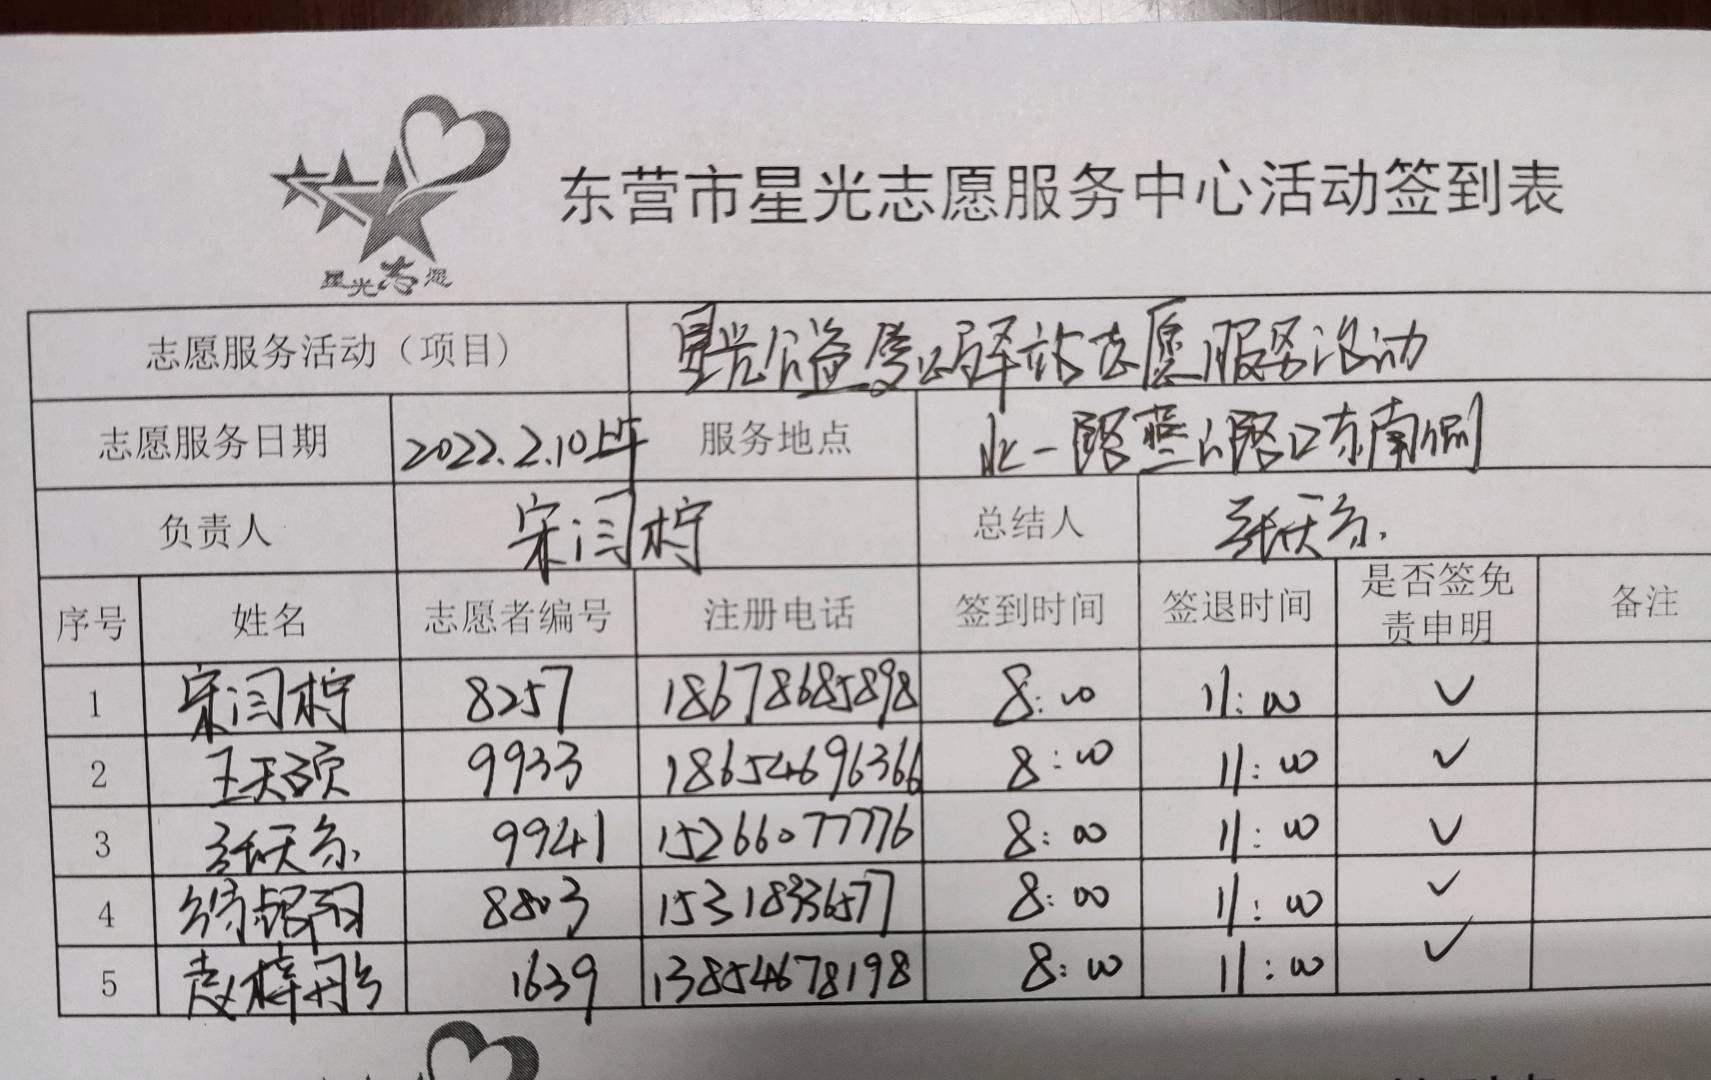 东营市星光志愿服务中心活动签到表
星光志愿
志愿服务活动（项目） 星光公益爱心驿站志愿服务活动
志愿服务日期 2022.2.10上午 服务地点 北一路燕山路口东南侧
负责人 宋闫柠 总结人 张天尔
序号 姓名 志愿者编号 注册电话 签到时间 签退时间 是否签免责申明 备注
1 宋闫柠 8257 18678685898 8:00 11:00 ✓
2 王天硕 9933 18654696366 8:00 11:00 ✓
3 张天尔 9941 15266077776 8:00 11:00 ✓
4 8803 8:00 11:00 ✓
5 赵梓彤 1639 13854678198 8:00 11:00 ✓